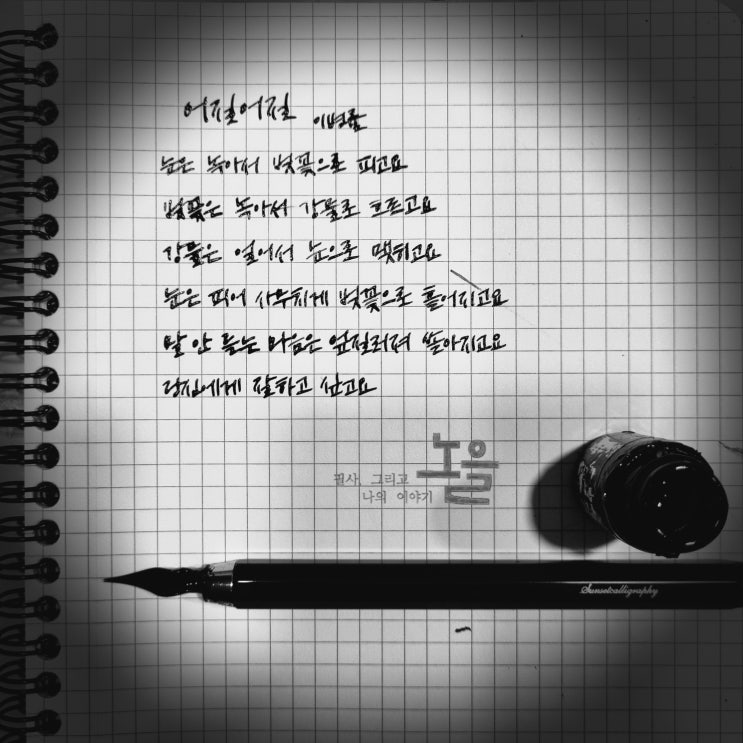 어질어질 이병률
눈은 녹아서 벚꽃으로 피고요
벚꽃은 녹아서 강물로 흐르고요
강물은 얼어서 눈으로 맺히고요
눈은 피어 사무치게 벚꽃으로 흩어지고요
말 안 듣는 마음은 엎질러져 쏟아지고요
당신에게 잘하고 싶고요
노을
필사, 그리고
나의 이야기
Sunsetcalligraphy